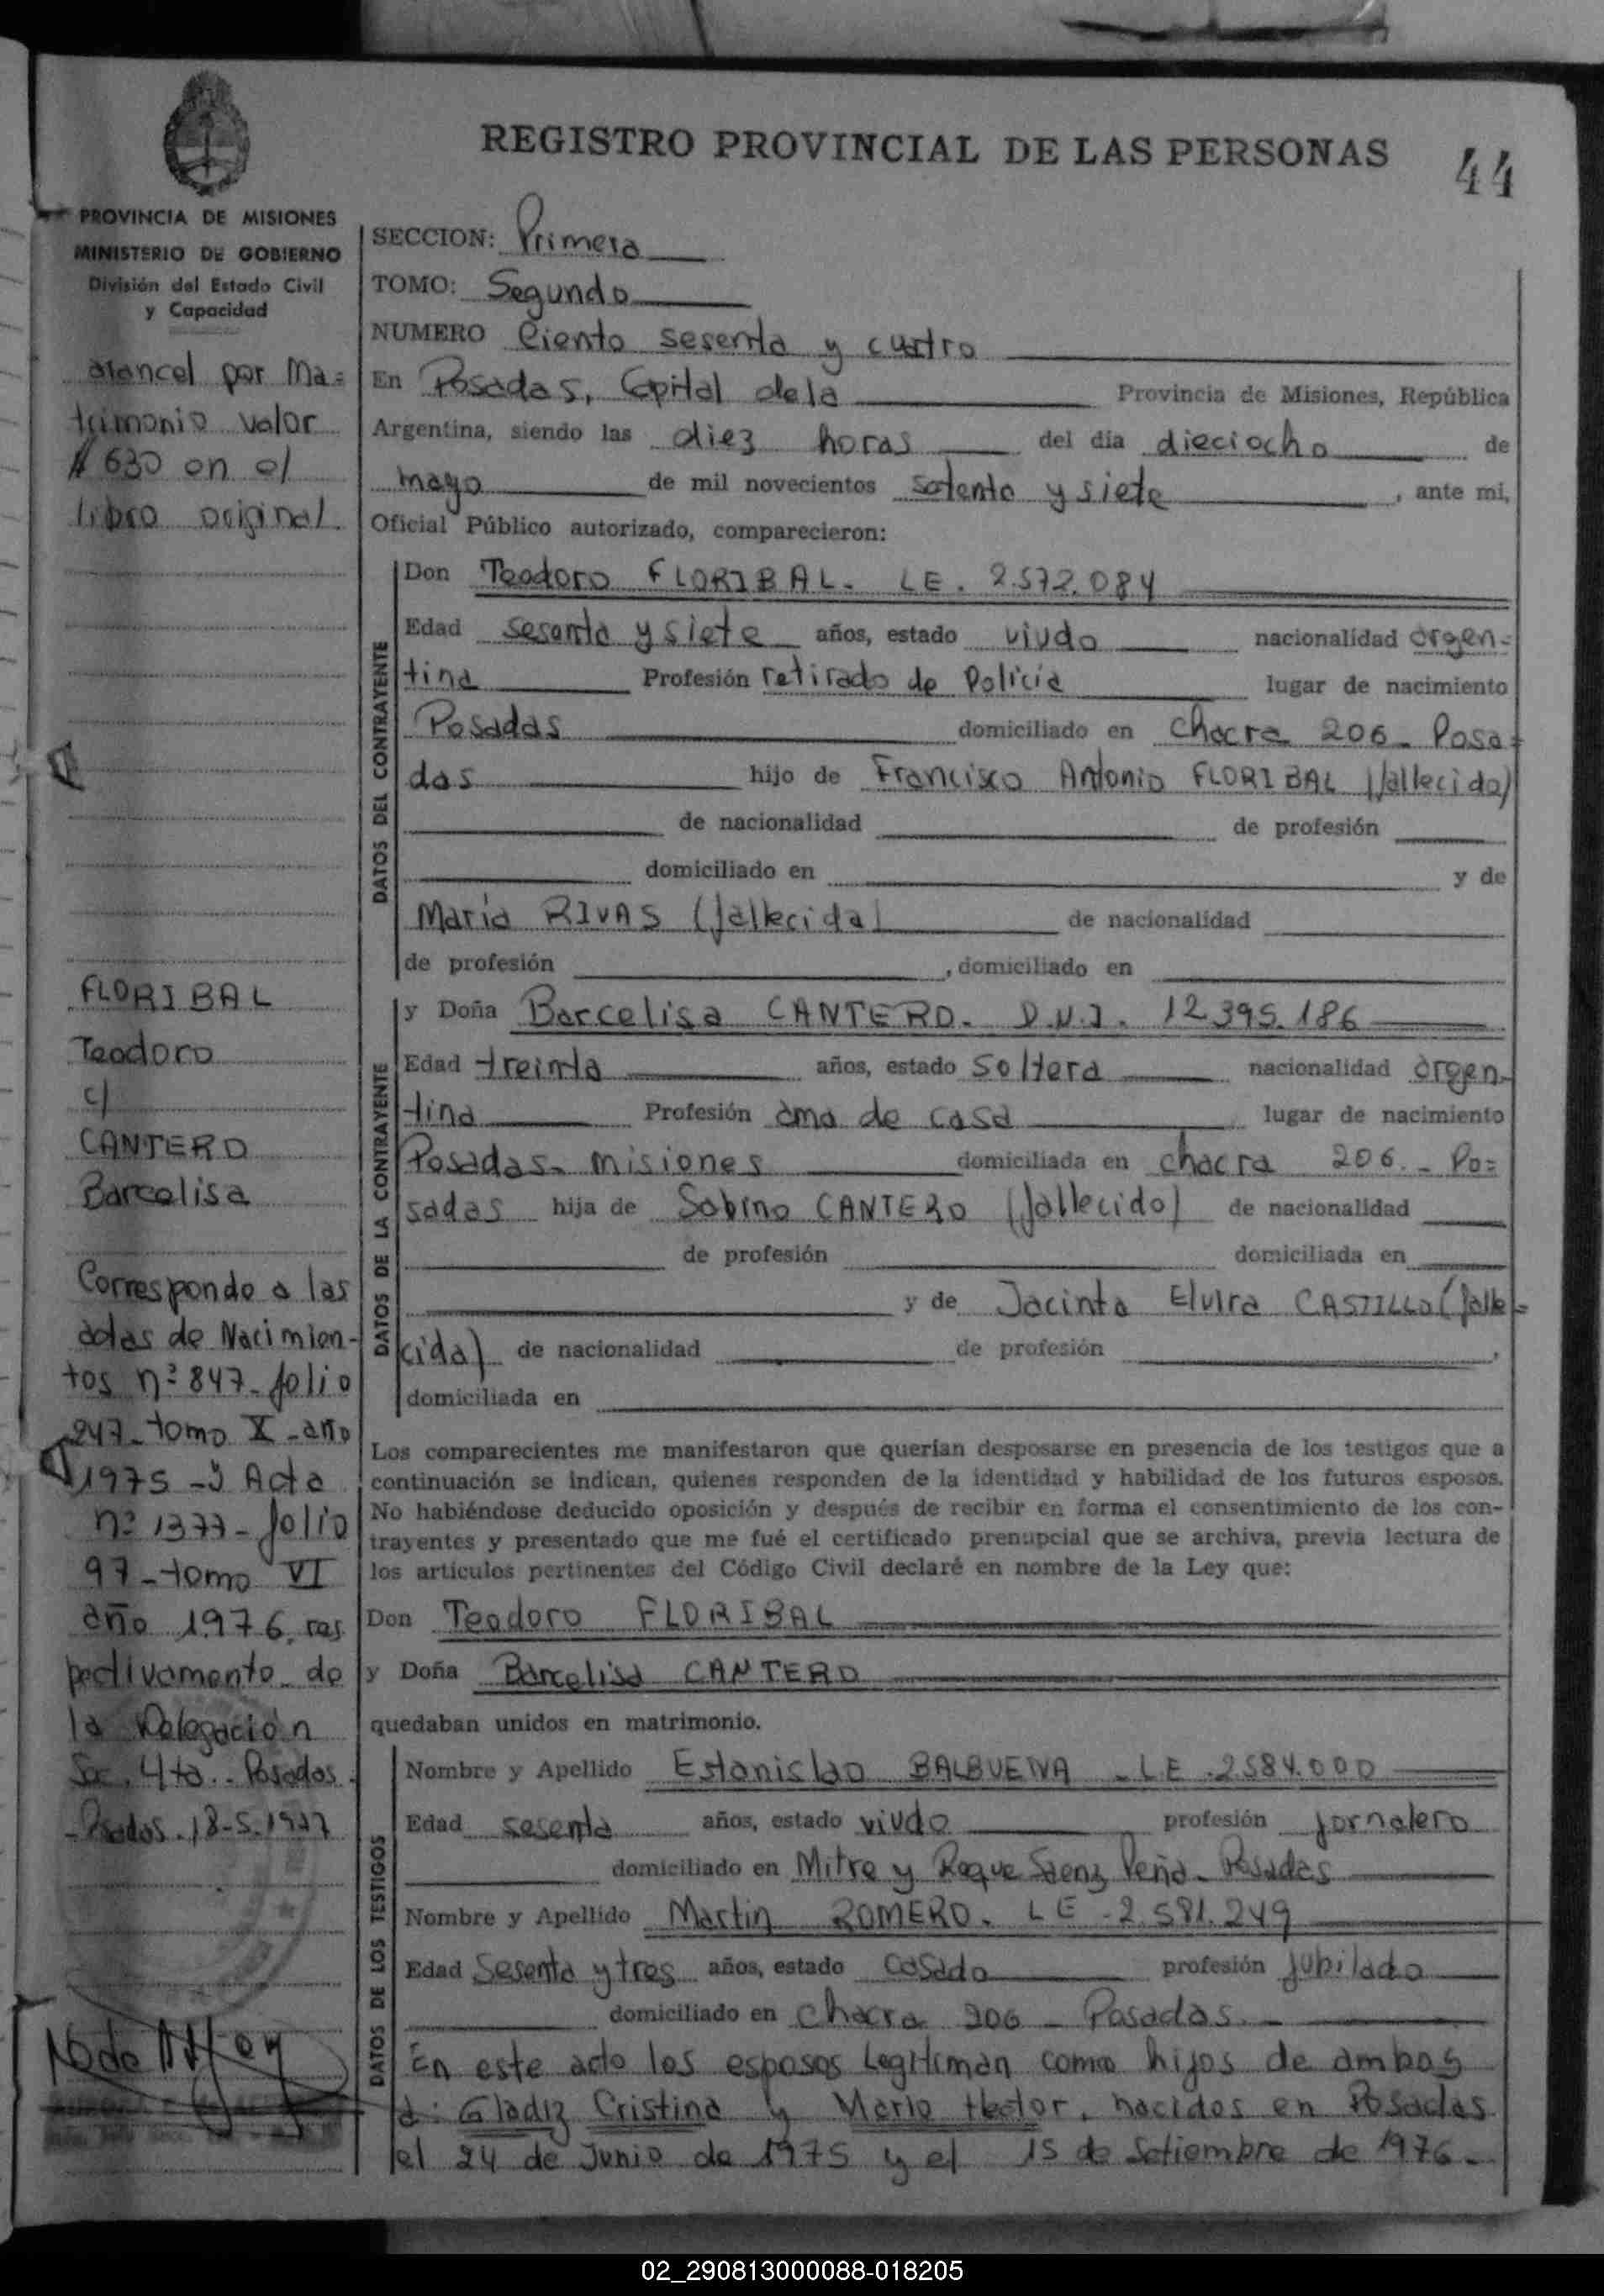 REGISTRO PROVINCIAL DE LAS PERSONAS
44
PROVINCIA DE MISIONES
MINISTERIO DE GOBIERNO
División del Estado Civil
y Capacidad
arancel por Ma=
trimonio valor
$ 630 en el
libro original.
FLORIBAL
Teodoro
c/
CANTERO
Barcelisa
Corresponde a las
actas de Nacimien-
tos nº 847 - folio
247 - tomo X - año
1975 - y Acta
nº 1377 - folio
97 - tomo VI
año 1976, res
pectivamente de
la Delegación
Sec. 4ta. - Posadas.
- Posadas. 18-5-1977
SECCION: Primera
TOMO: Segundo
NUMERO Ciento sesenta y cuatro
En Posadas, Capital de la Provincia de Misiones, República
Argentina, siendo las diez horas del día dieciocho de
mayo de mil novecientos setenta y siete, ante mi,
Oficial Público autorizado, comparecieron:
DATOS DEL CONTRAYENTE
Don Teodoro FLORIBAL. LE. 2.572.084
Edad sesenta y siete años, estado viudo nacionalidad argen-
tina Profesión retirado de Policía lugar de nacimiento
Posadas domiciliado en Chacra 206 - Posa=
das hijo de Francisco Antonio FLORIBAL (fallecido)
de nacionalidad de profesión
domiciliado en y de
María RIVAS (fallecida) de nacionalidad
de profesión , domiciliado en
DATOS DE LA CONTRAYENTE
y Doña Barcelisa CANTERO. D.N.I. 12.395.186
Edad treinta años, estado soltera nacionalidad argen-
tina Profesión ama de casa lugar de nacimiento
Posadas - Misiones domiciliada en chacra 206 - Po=
sadas hija de Sabino CANTERO (fallecido) de nacionalidad
de profesión domiciliada en
y de Jacinta Elvira CASTILLO (falle-
cida) de nacionalidad de profesión ,
domiciliada en
Los comparecientes me manifestaron que querían desposarse en presencia de los testigos que a
continuación se indican, quienes responden de la identidad y habilidad de los futuros esposos.
No habiéndose deducido oposición y después de recibir en forma el consentimiento de los con-
trayentes y presentado que me fué el certificado prenupcial que se archiva, previa lectura de
los artículos pertinentes del Código Civil declaré en nombre de la Ley que:
Don Teodoro FLORIBAL
y Doña Barcelisa CANTERO
quedaban unidos en matrimonio.
DATOS DE LOS TESTIGOS
Nombre y Apellido Estanislao BALBUENA - LE. 2.584.000
Edad sesenta años, estado viudo profesión jornalero
domiciliado en Mitre y Roque Saenz Peña - Posadas
Nombre y Apellido Martin ROMERO. LE - 2.581.249
Edad Sesenta y tres años, estado casado profesión jubilado
domiciliado en Chacra 206 - Posadas. -
En este acto los esposos legitiman como hijos de ambos
a: Gladiz Cristina y Mario Hector, nacidos en Posadas
el 24 de Junio de 1975 y el 15 de Setiembre de 1976.-
02_290813000088-018205